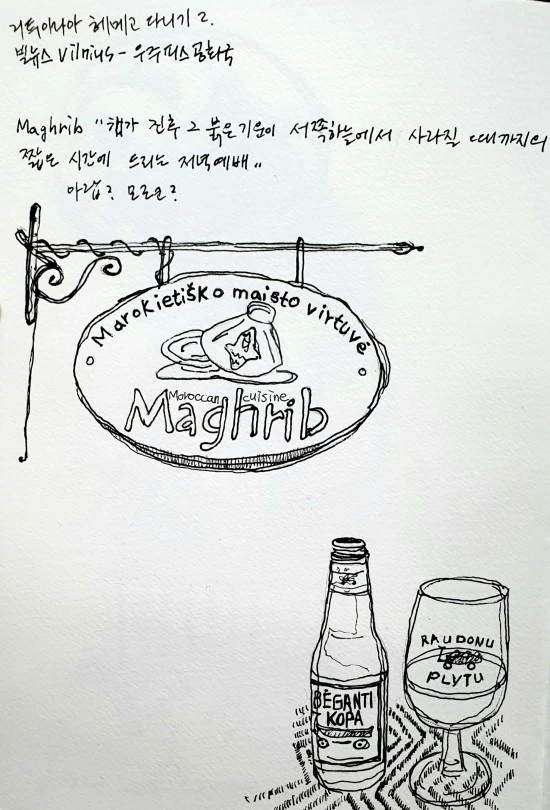 리투아니아 헤메고 다니기 2.
빌뉴스 Vilnius - 우주피스 공화국
Maghrib "해가 진후 그 붉은 기운이 서쪽하늘에서 사라질 때까지의
짧은 시간에 드리는 저녁예배"
아랍? 모로코?
Marokietiško maisto virtuvė
Moroccan cuisine
Maghrib
BĖGANTI
KOPA
RAUDONU
PLYTU